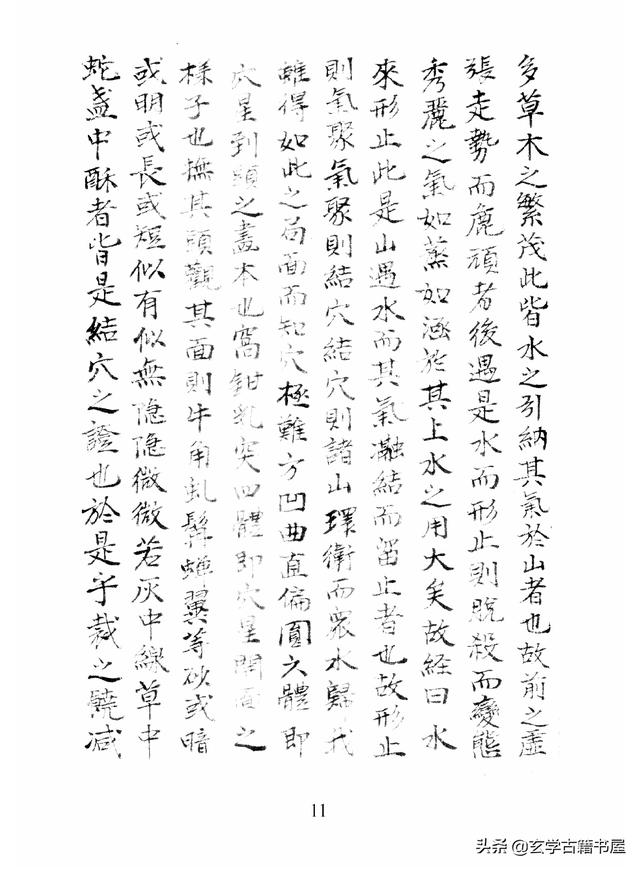 多草木之繁茂此皆水之引納其氣於山者也故前之虛
張走勢而麄頑者後遇是水而形止則脫殺而變態
秀麗之氣如蒸如涵於其上水之用大矣故经曰水
來形止此是山遇水而其氣瀜結而留止者也故形止
則氣聚氣聚則結穴結穴則諸山環衛而衆水歸我
雖得如此之局面而知穴極難方凹曲直偏圓六體即
穴星到頭之盡本也窩鉗乳突四體即穴星開面之
樣子也撫其頭觀其面則牛角虬髯蟬翼等砂或暗
或明或長或短似有似無隐隐微微若灰中線草中
蛇盞中酥者皆是結穴之證也於是乎裁之饒减
11
头条@玄学古籍书屋